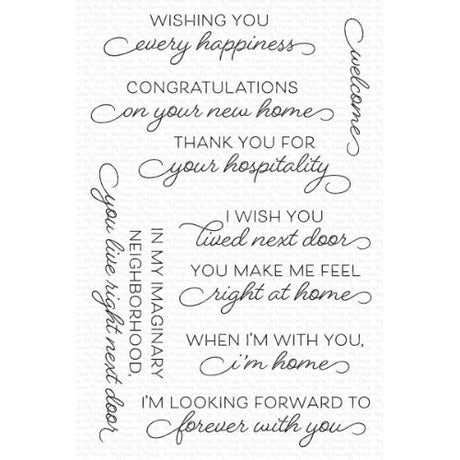 WISHING YOU
every happiness
welcome
CONGRATULATIONS
on your new home
THANK YOU FOR
your hospitality
I WISH YOU
lived next door
YOU MAKE ME FEEL
right at home
IN MY IMAGINARY
NEIGHBORHOOD,
you live right next door
WHEN I'M WITH YOU,
i'm home
I'M LOOKING FORWARD TO
forever with you